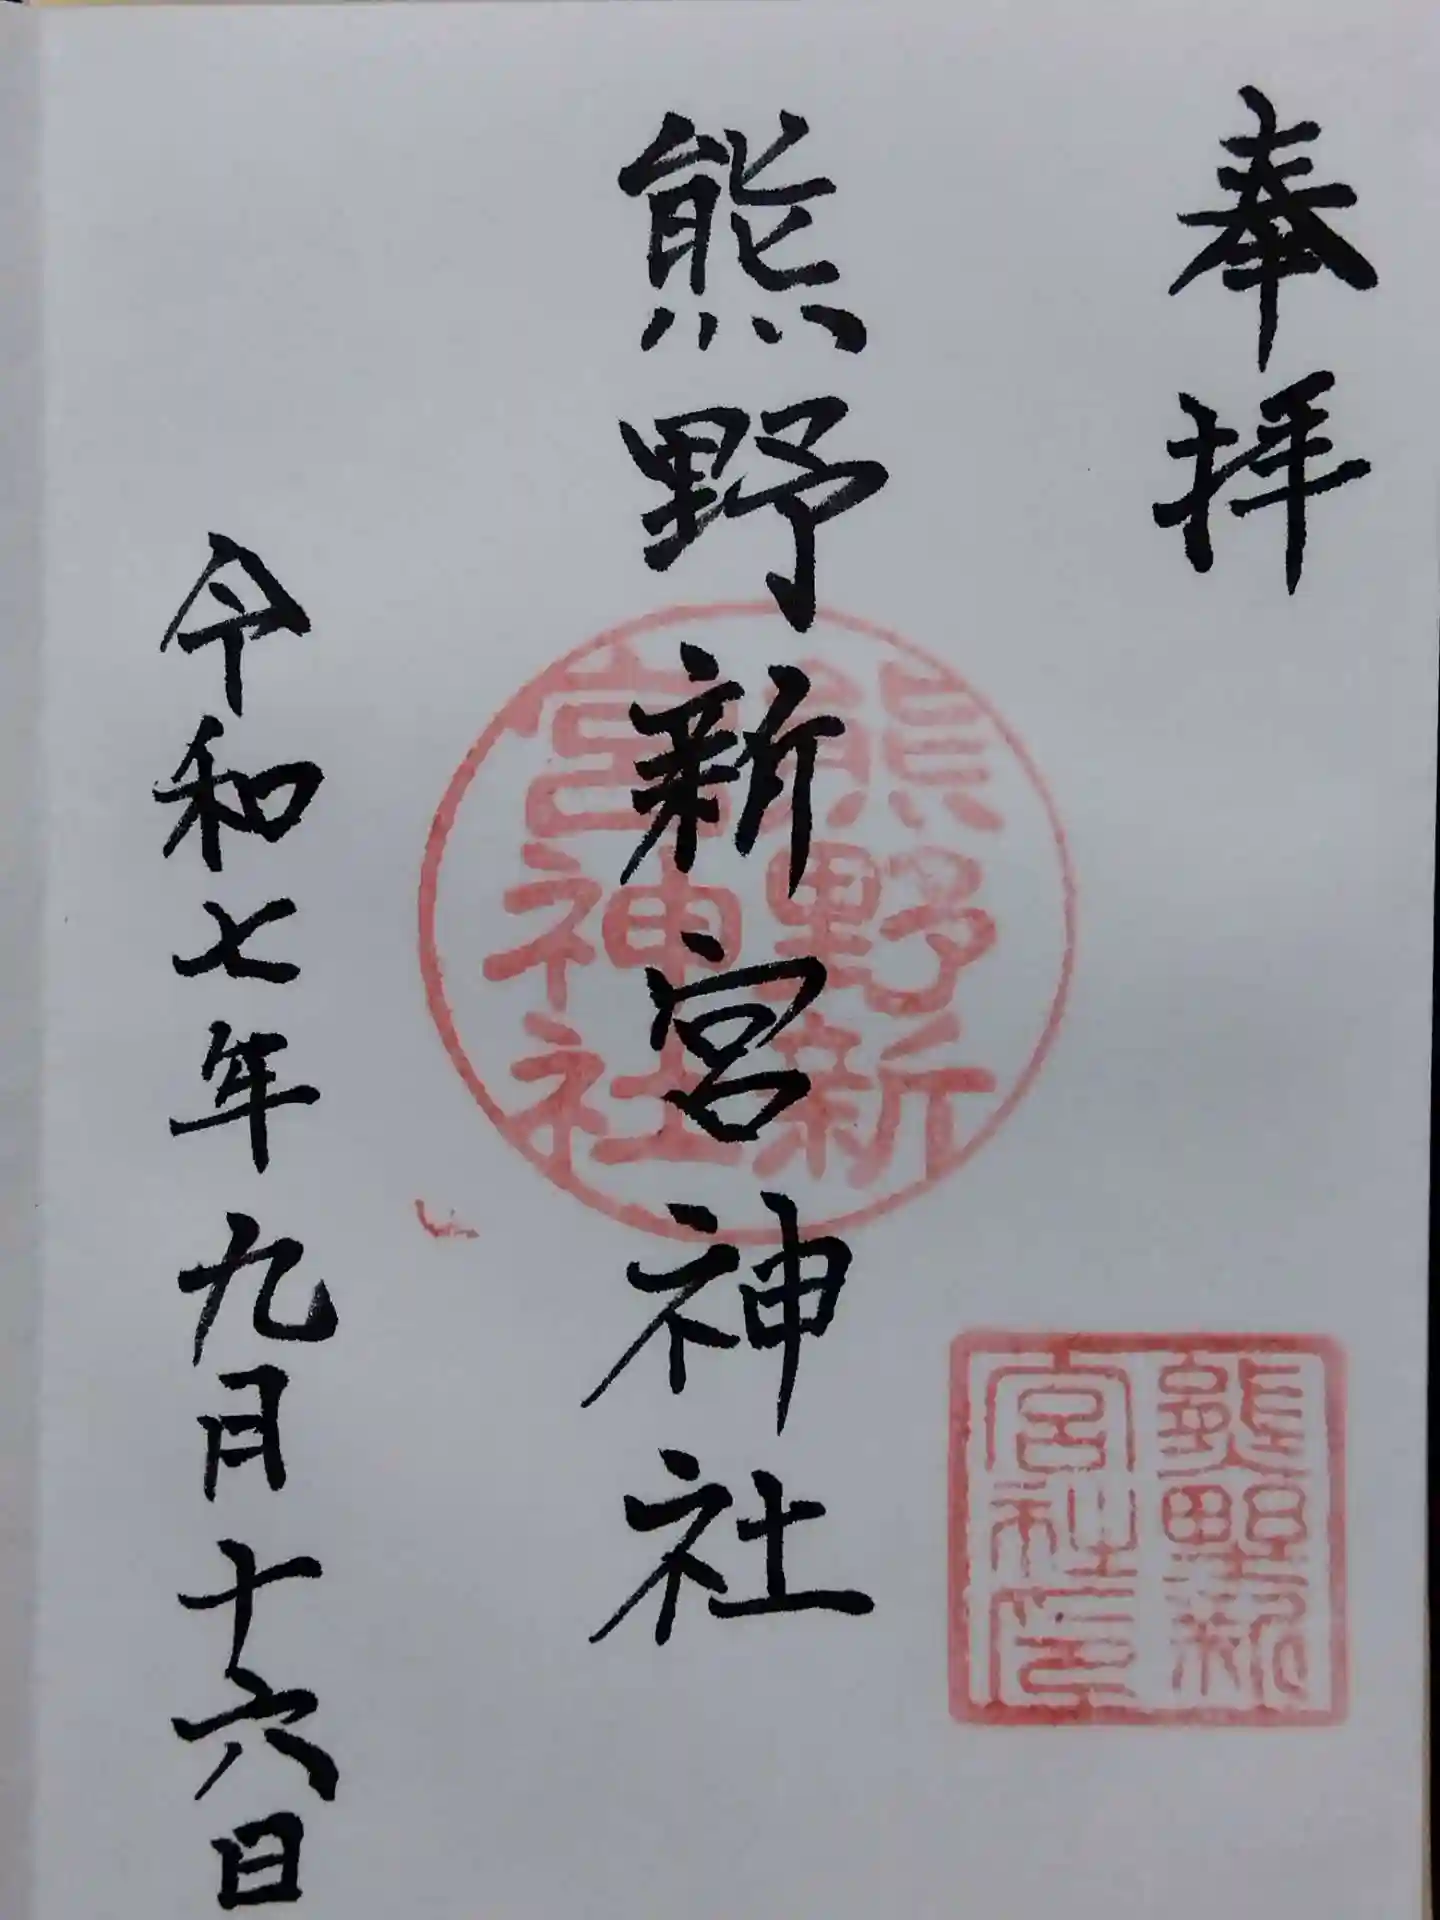 奉拝
熊野新宮神社
熊野新
宮神社
熊野新
宮社印
令和七年九月十六日